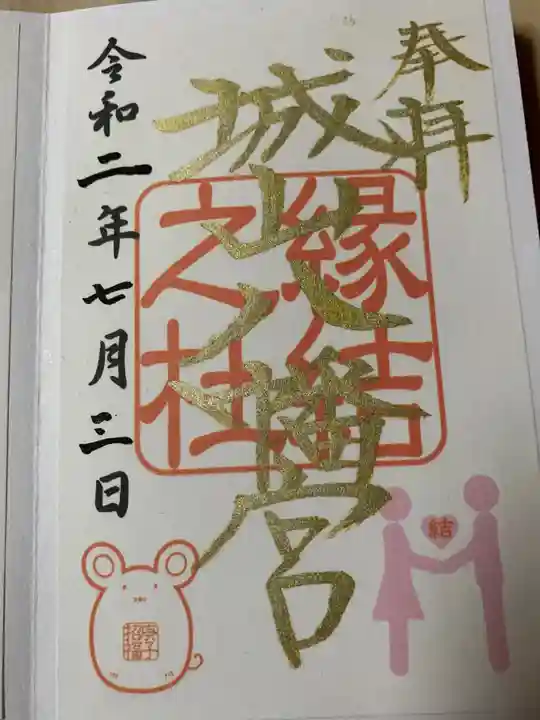 奉拝
城山八幡宮
縁結
之社
令和二年七月三日
結